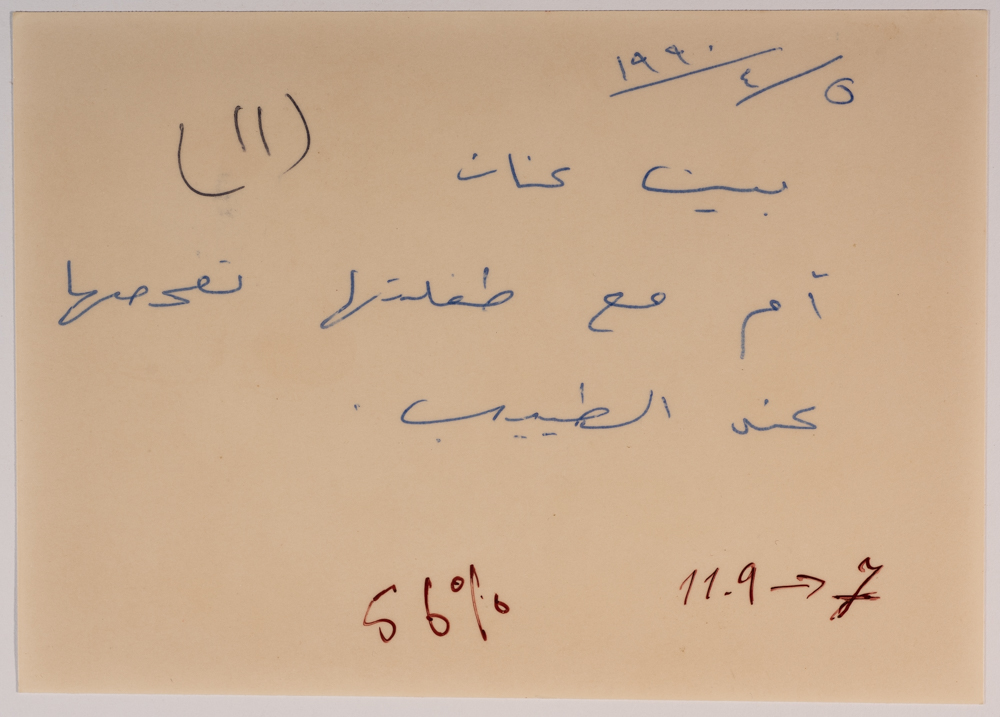 ٥/٤/١٩٩٠
(11)
بيت عنان
أم مع طفلتها تفحصها
عند الطبيب.
56%
11.9 → 7